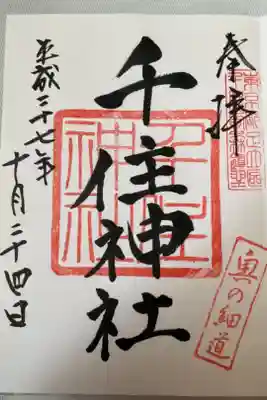 奉拝
奥の細道
千住神社
千住
神社
平成二十七年
十月二十四日